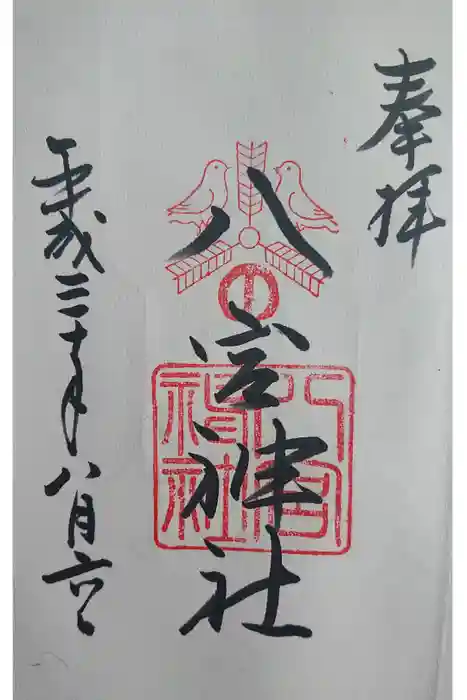 奉拝
八宮神社
八宮
神社
平成三十年八月六日